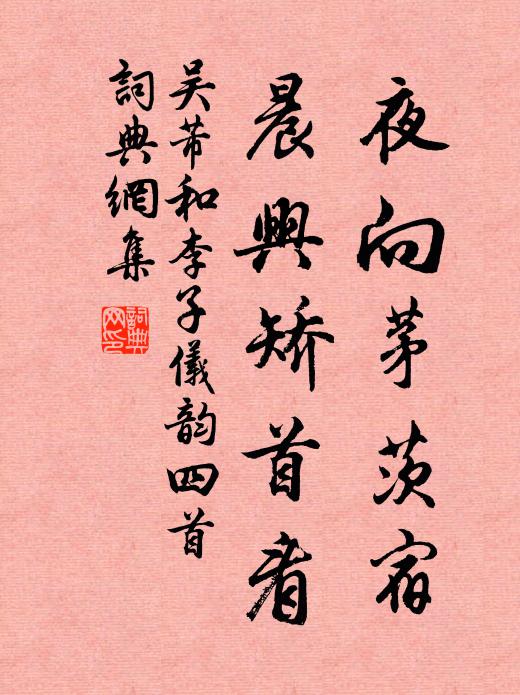 夜向茅茨宿
晨興矫首看
吴芾和李子儀韵四首
詞典網集
詞典
网印